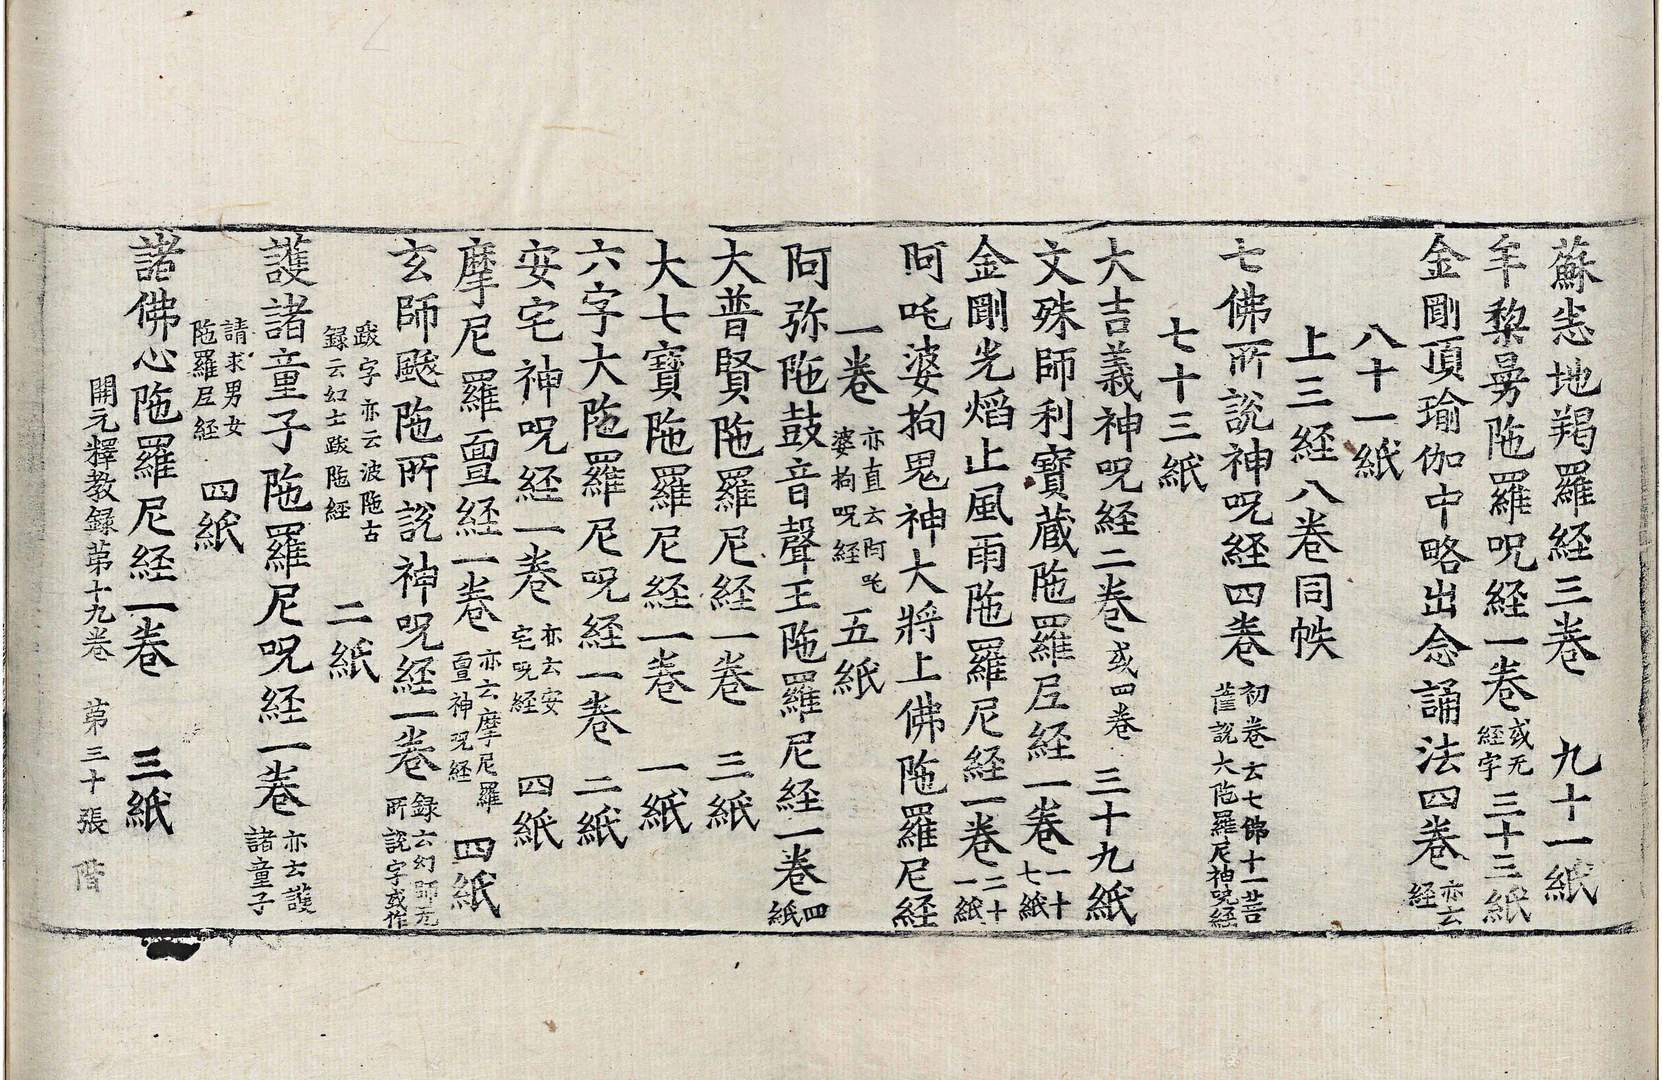 蘇悉地羯羅経三卷 九十一紙
牟棃曼陁羅呪経一卷 或无経字 三十三紙
金剛頂瑜伽中略出念誦法四卷 亦云経
八十一紙
上三経八卷同帙
七佛所說神呪経四卷 初卷云七佛十一菩薩說大陁羅尼神呪経
七十三紙
大吉義神呪経二卷 或四卷 三十九紙
文殊師利寶蔵陁羅尼経一卷 一十七紙
金剛光熖止風雨陁羅尼経一卷 二十一紙
阿吒婆拘鬼神大將上佛陁羅尼経
一卷 亦直云阿吒婆拘呪経 五紙
阿弥陁鼓音聲王陁羅尼経一卷 四紙
大普賢陁羅尼経一卷 三紙
大七寶陁羅尼経一卷 一紙
六字大陁羅尼呪経一卷 二紙
安宅神呪経一卷 亦云安宅呪経 四紙
摩尼羅亶経一卷 亦云摩尼羅亶神呪経 四紙
玄師颰陁所說神呪経一卷 録云幻師无所說字或作
跋字亦云波陁古録云幻士跋陁経 二紙
護諸童子陁羅尼呪経一卷 亦云護諸童子
請求男女陁羅尼経 四紙
諸佛心陁羅尼経一卷 三紙
開元釋教録苐十九卷 苐三十張 階